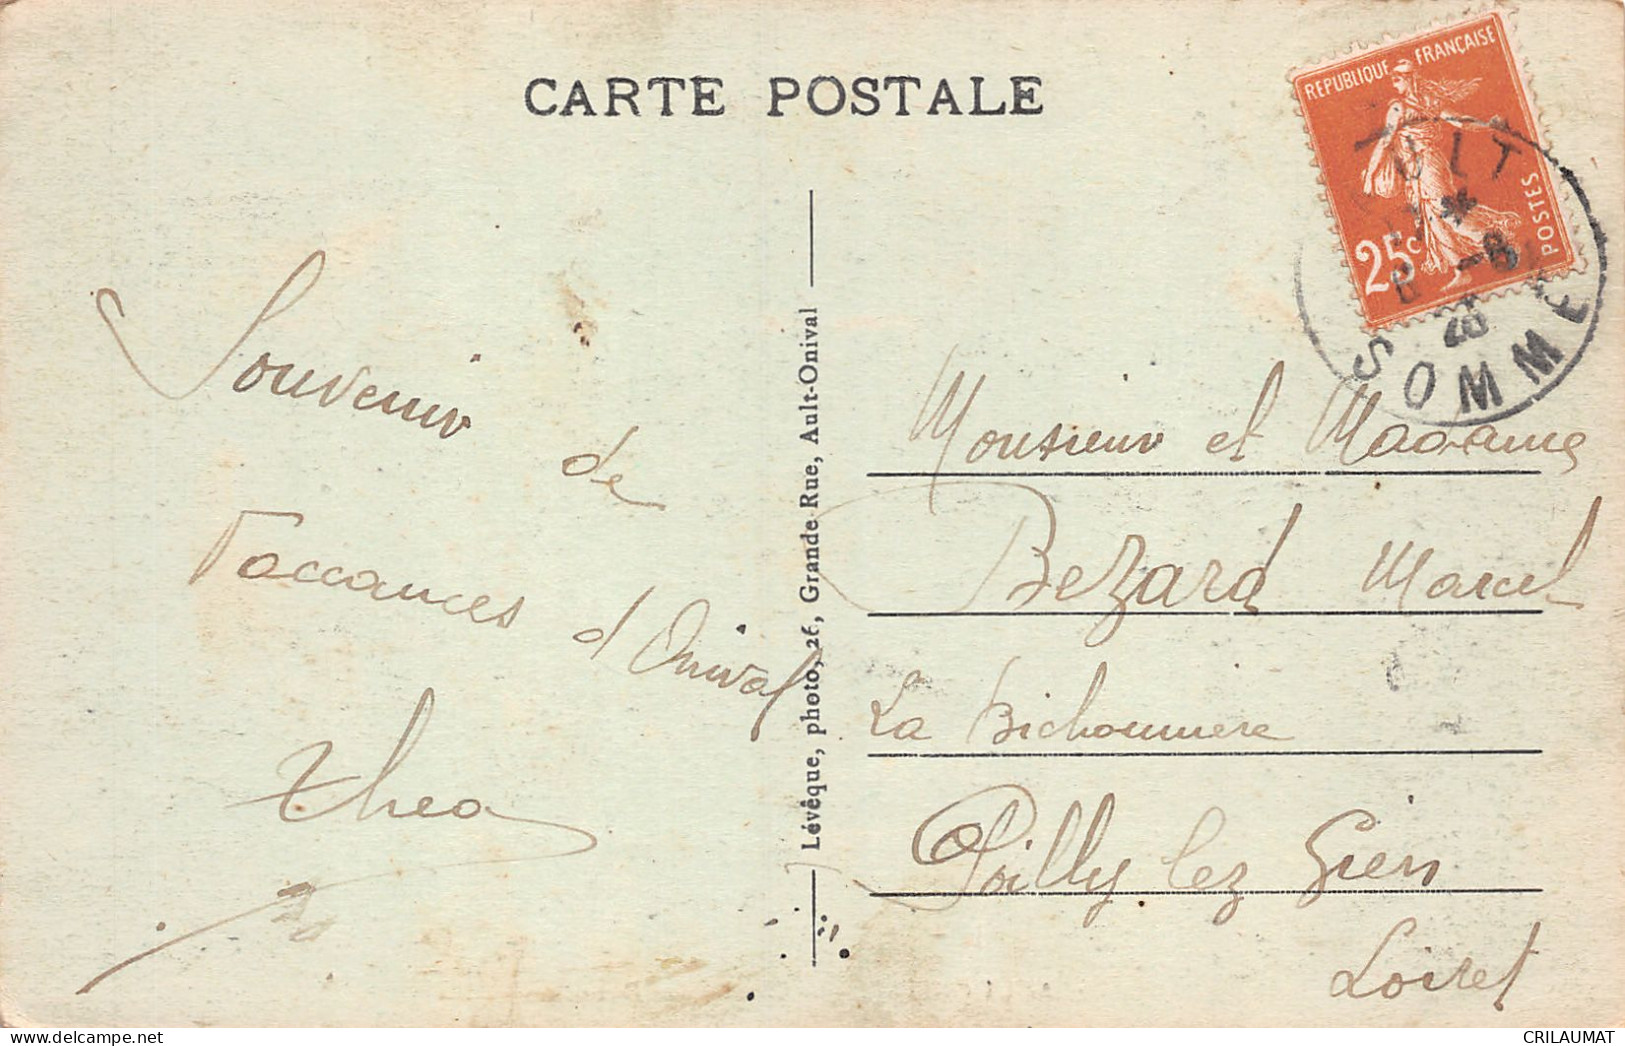 CARTE POSTALE
REPUBLIQUE FRANÇAISE
POSTES
25c
AULT
17 *
6 -8
28
SOMME
Souvenir
de
Vaccances d'Onival
thea
Lévêque, photo, 26, Grande Rue, Ault-Onival
Monsieur et Madame
Bezard Marcel
La Bichonniere
Poilly lez Gien
Loiret
www.delcampe.net
CRILAUMAT